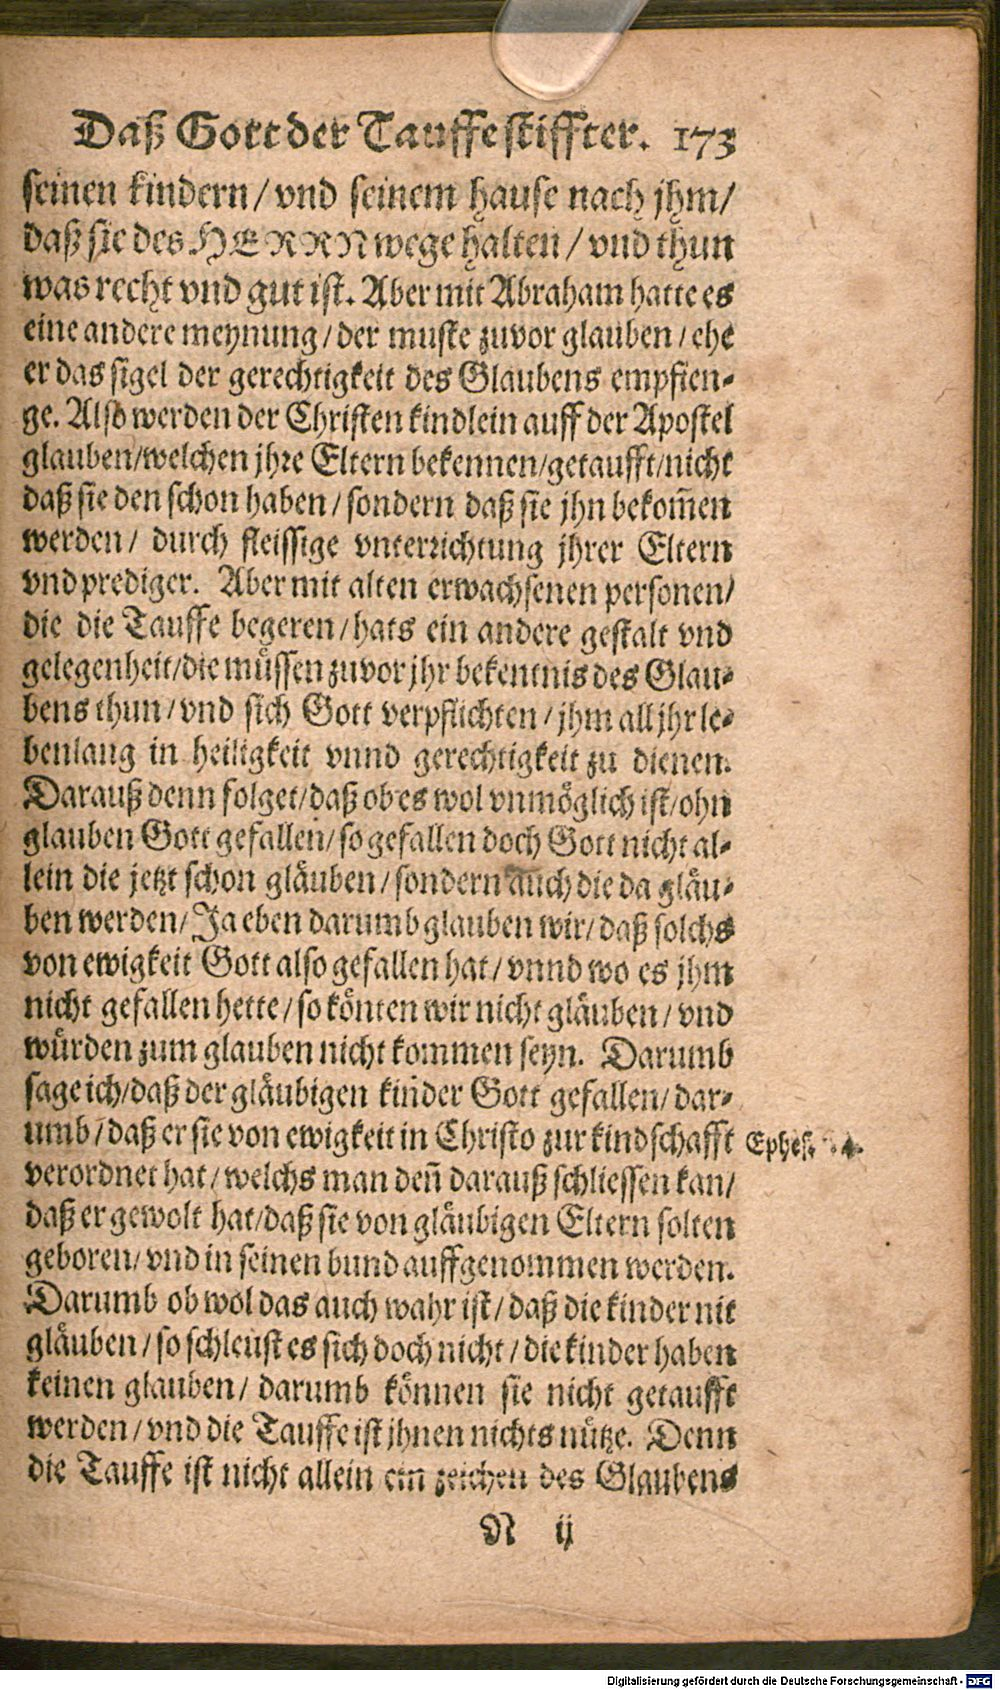 Daß Gott der Tauffe stiffter. 173
seinen kindern / vnd seinem hause nach jhm /
daß sie des HERRN wege halten / vnd thun
was recht vnd gut ist. Aber mit Abraham hatte es
eine andere meynung / der muste zuvor glauben / ehe
er das sigel der gerechtigkeit des Glaubens empfien-
ge. Also werden der Christen kindlein auff der Apostel
glauben / welchen jhre Eltern bekennen / getaufft / nicht
daß sie den schon haben / sondern daß sie jhn bekom̃en
werden / durch fleissige vnterrichtung jhrer Eltern
vnd prediger. Aber mit alten erwachsenen personen /
die die Tauffe begeren / hats ein andere gestalt vnd
gelegenheit / die müssen zuvor jhr bekentnis des Glau-
bens thun / vnd sich Gott verpflichten / jhm all jhr le-
benlang in heiligkeit vnnd gerechtigkeit zu dienen.
Darauß denn folget / daß ob es wol vnmöglich ist / ohn
glauben Gott gefallen / so gefallen doch Gott nicht al-
lein die jetzt schon gläuben / sondern auch die da gläu-
ben werden / Ja eben darumb glauben wir / daß solchs
von ewigkeit Gott also gefallen hat / vnnd wo es jhm
nicht gefallen hette / so könten wir nicht gläuben / vnd
würden zum glauben nicht kommen seyn. Darumb
sage ich / daß der gläubigen kinder Gott gefallen / dar-
umb / daß er sie von ewigkeit in Christo zur kindschafft
Ephes.
verordnet hat / welchs man deñ darauß schliessen kan /
daß er gewolt hat / daß sie von gläubigen Eltern solten
geboren / vnd in seinen bund auffgenommen werden.
Darumb ob wol das auch wahr ist / daß die kinder nit
gläuben / so schleust es sich doch nicht / die kinder haben
keinen glauben / darumb können sie nicht getaufft
werden / vnd die Tauffe ist jhnen nichts nütze. Denn
die Tauffe ist nicht allein ein zeichen des Glaubens
N ij
Digitalisierung gefördert durch die Deutsche Forschungsgemeinschaft - DFG